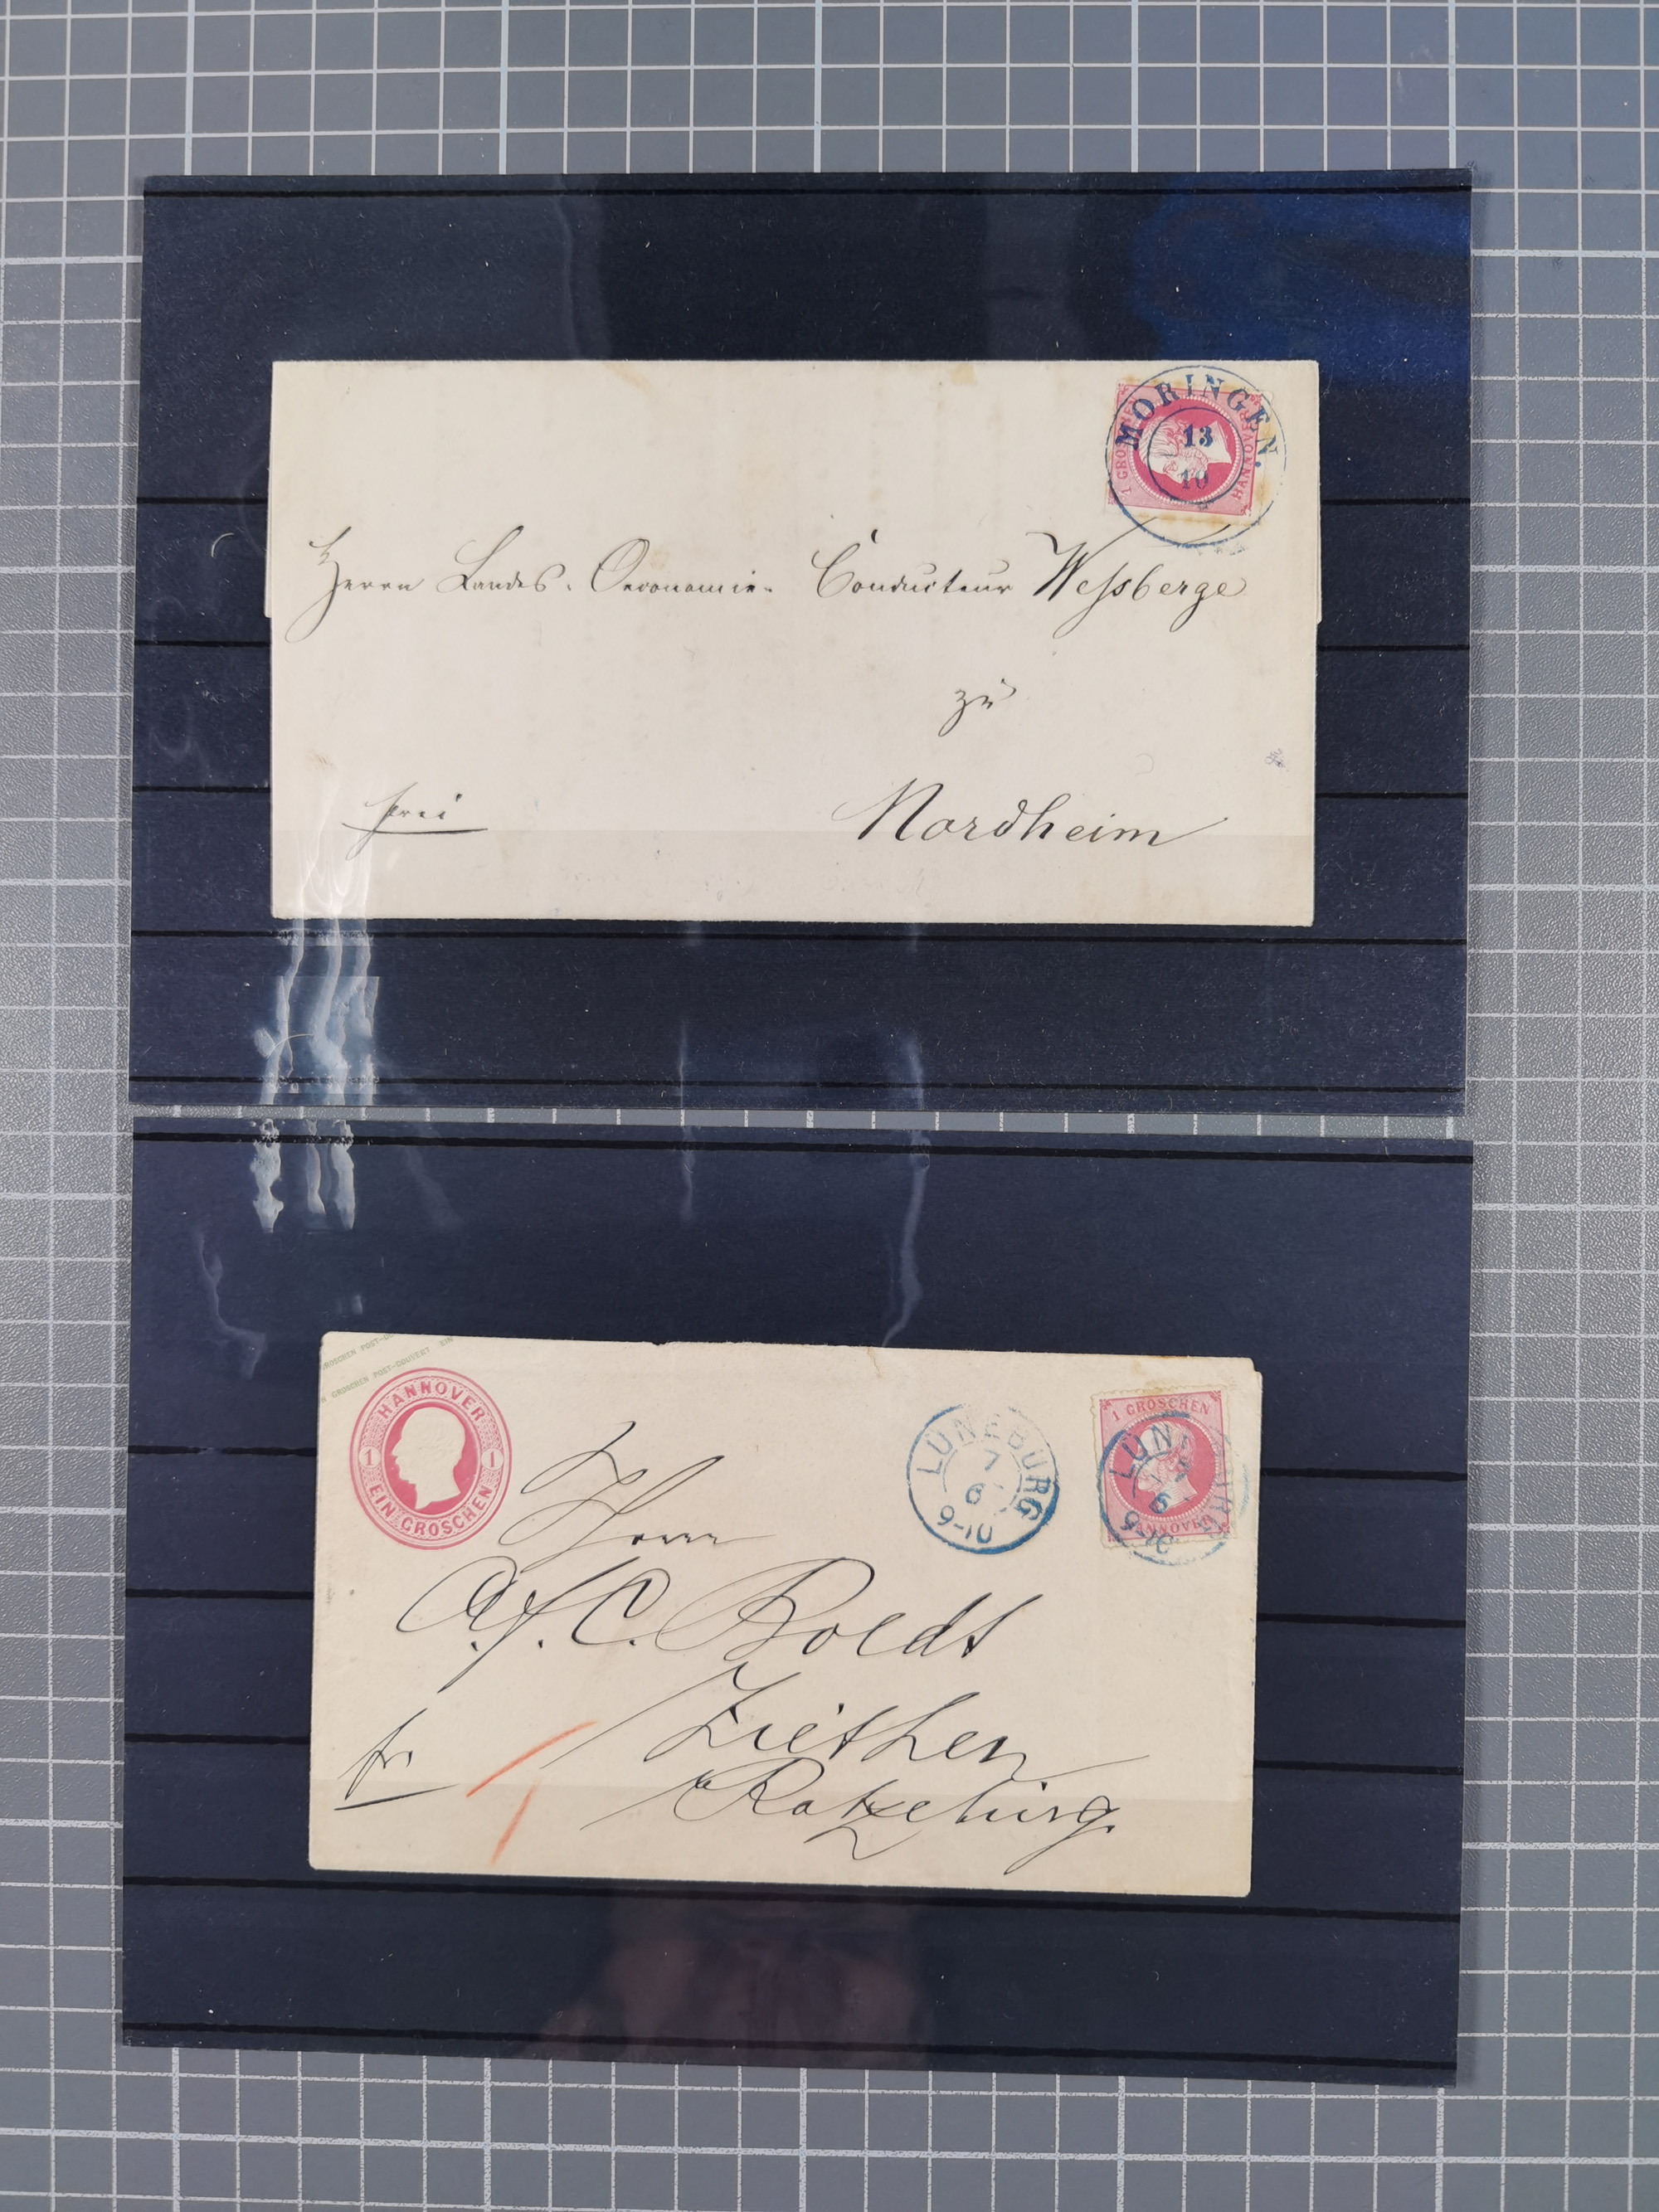 MORINGEN.
13
10
1 GROSCHEN
HANNOVER
Herrn Landes-Oeconomie-Conducteur Wessberge
zu
frei
Nordheim
GROSCHEN POST-COUVERT
GROSCHEN POST-COUVERT EIN
HANNOVER
1 1
EIN GROSCHEN
LÜNEBURG
7
6
9-10
1 GROSCHEN
HANNOVER
LÜNEBURG
7
6
9-10
Herrn
A. f. C. Boldt
Ziethen
fr.
Ratzeburg.